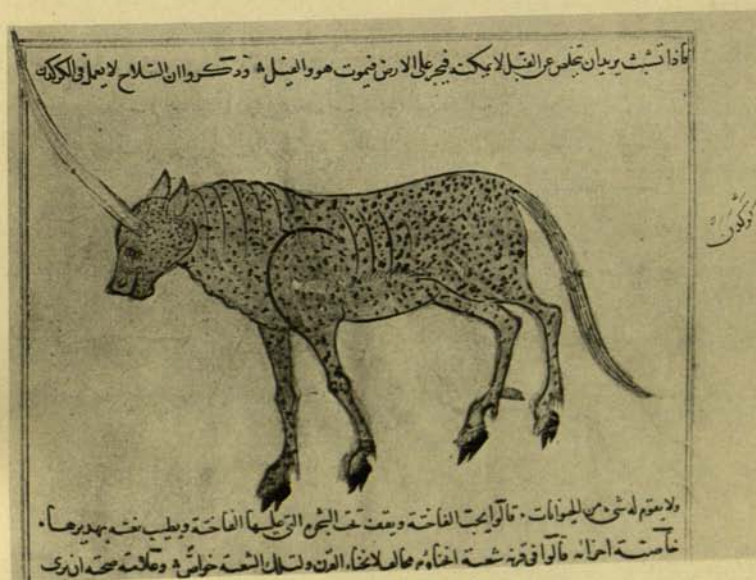 فاذا تشبث يريد ان يتخلص عن الفيل لا يمكنه فيخر على الارض فيموت هو والفيل وذكروا ان السلاح لا يعمل فى الكركدن
كركدن
ولا يقوم له شئ من الحيوانات قالوا يحب الفاختة ويقف تحت الشجرة التى عليها الفاختة ويطيب نفسه بهديرها
خاصية اجزائه قالوا فى قرنه شعبة انحناؤه مخالف لانحناء القرن ولتلك الشعبة خواص وعلامة صحته ان يرى